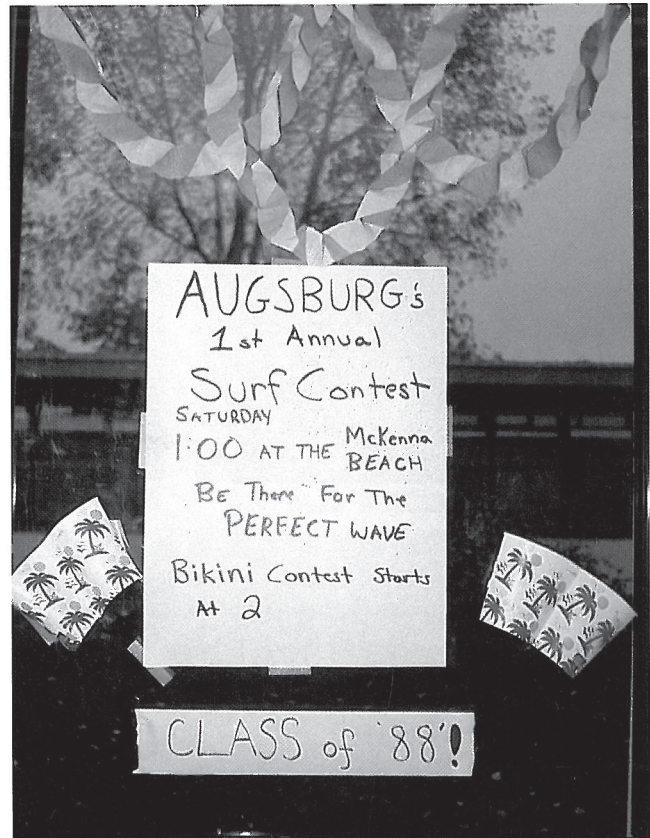 AUGSBURG's
1st Annual
Surf Contest
SATURDAY
1:00 AT THE McKenna
BEACH
BE There For The
PERFECT WAVE
Bikini Contest Starts
At 2
CLASS of '88'!